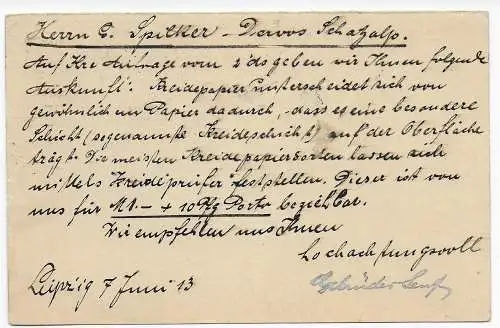 Herrn E. Spilker - Davos Schatzalp.
Auf Ihre Anfrage vom 2 ds geben wir Ihnen folgende
Auskunft: Kreidepapier unterscheidet sich von
gewöhnlichem Papier dadurch, dass es eine besondere
Schicht (sogenannte Kreideschicht) auf der Oberfläche
trägt. Die meisten Kreidepapiersorten lassen sich
mittels "Kreideprüfer" feststellen. Dieser ist von
uns für M1.- + 10 Pfg Porto beziehbar.
Wir empfehlen uns Ihnen
hochachtungsvoll
Leipzig 7 Juni 13 Gebrüder Senf